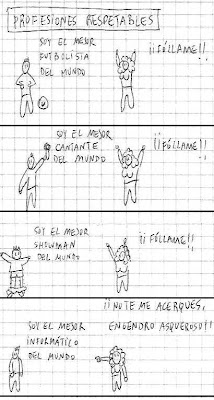 PROFESIONES RESPETABLES
SOY EL MEJOR
FUTBOLISTA
DEL MUNDO
¡¡FÓLLAME!!
SOY EL MEJOR
CANTANTE
DEL MUNDO
¡¡FÓLLAME!!
SOY EL MEJOR
SHOWMAN
DEL MUNDO
¡¡FÓLLAME!!
SOY EL MEJOR
INFORMÁTICO
DEL MUNDO
¡¡NO TE ME ACERQUES,
ENGENDRO ASQUEROSO!!